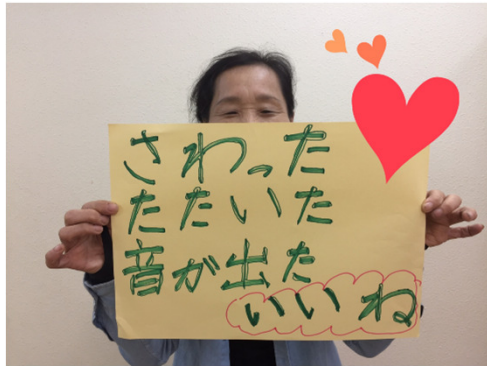 さわった
たたいた
音が出た
いいね